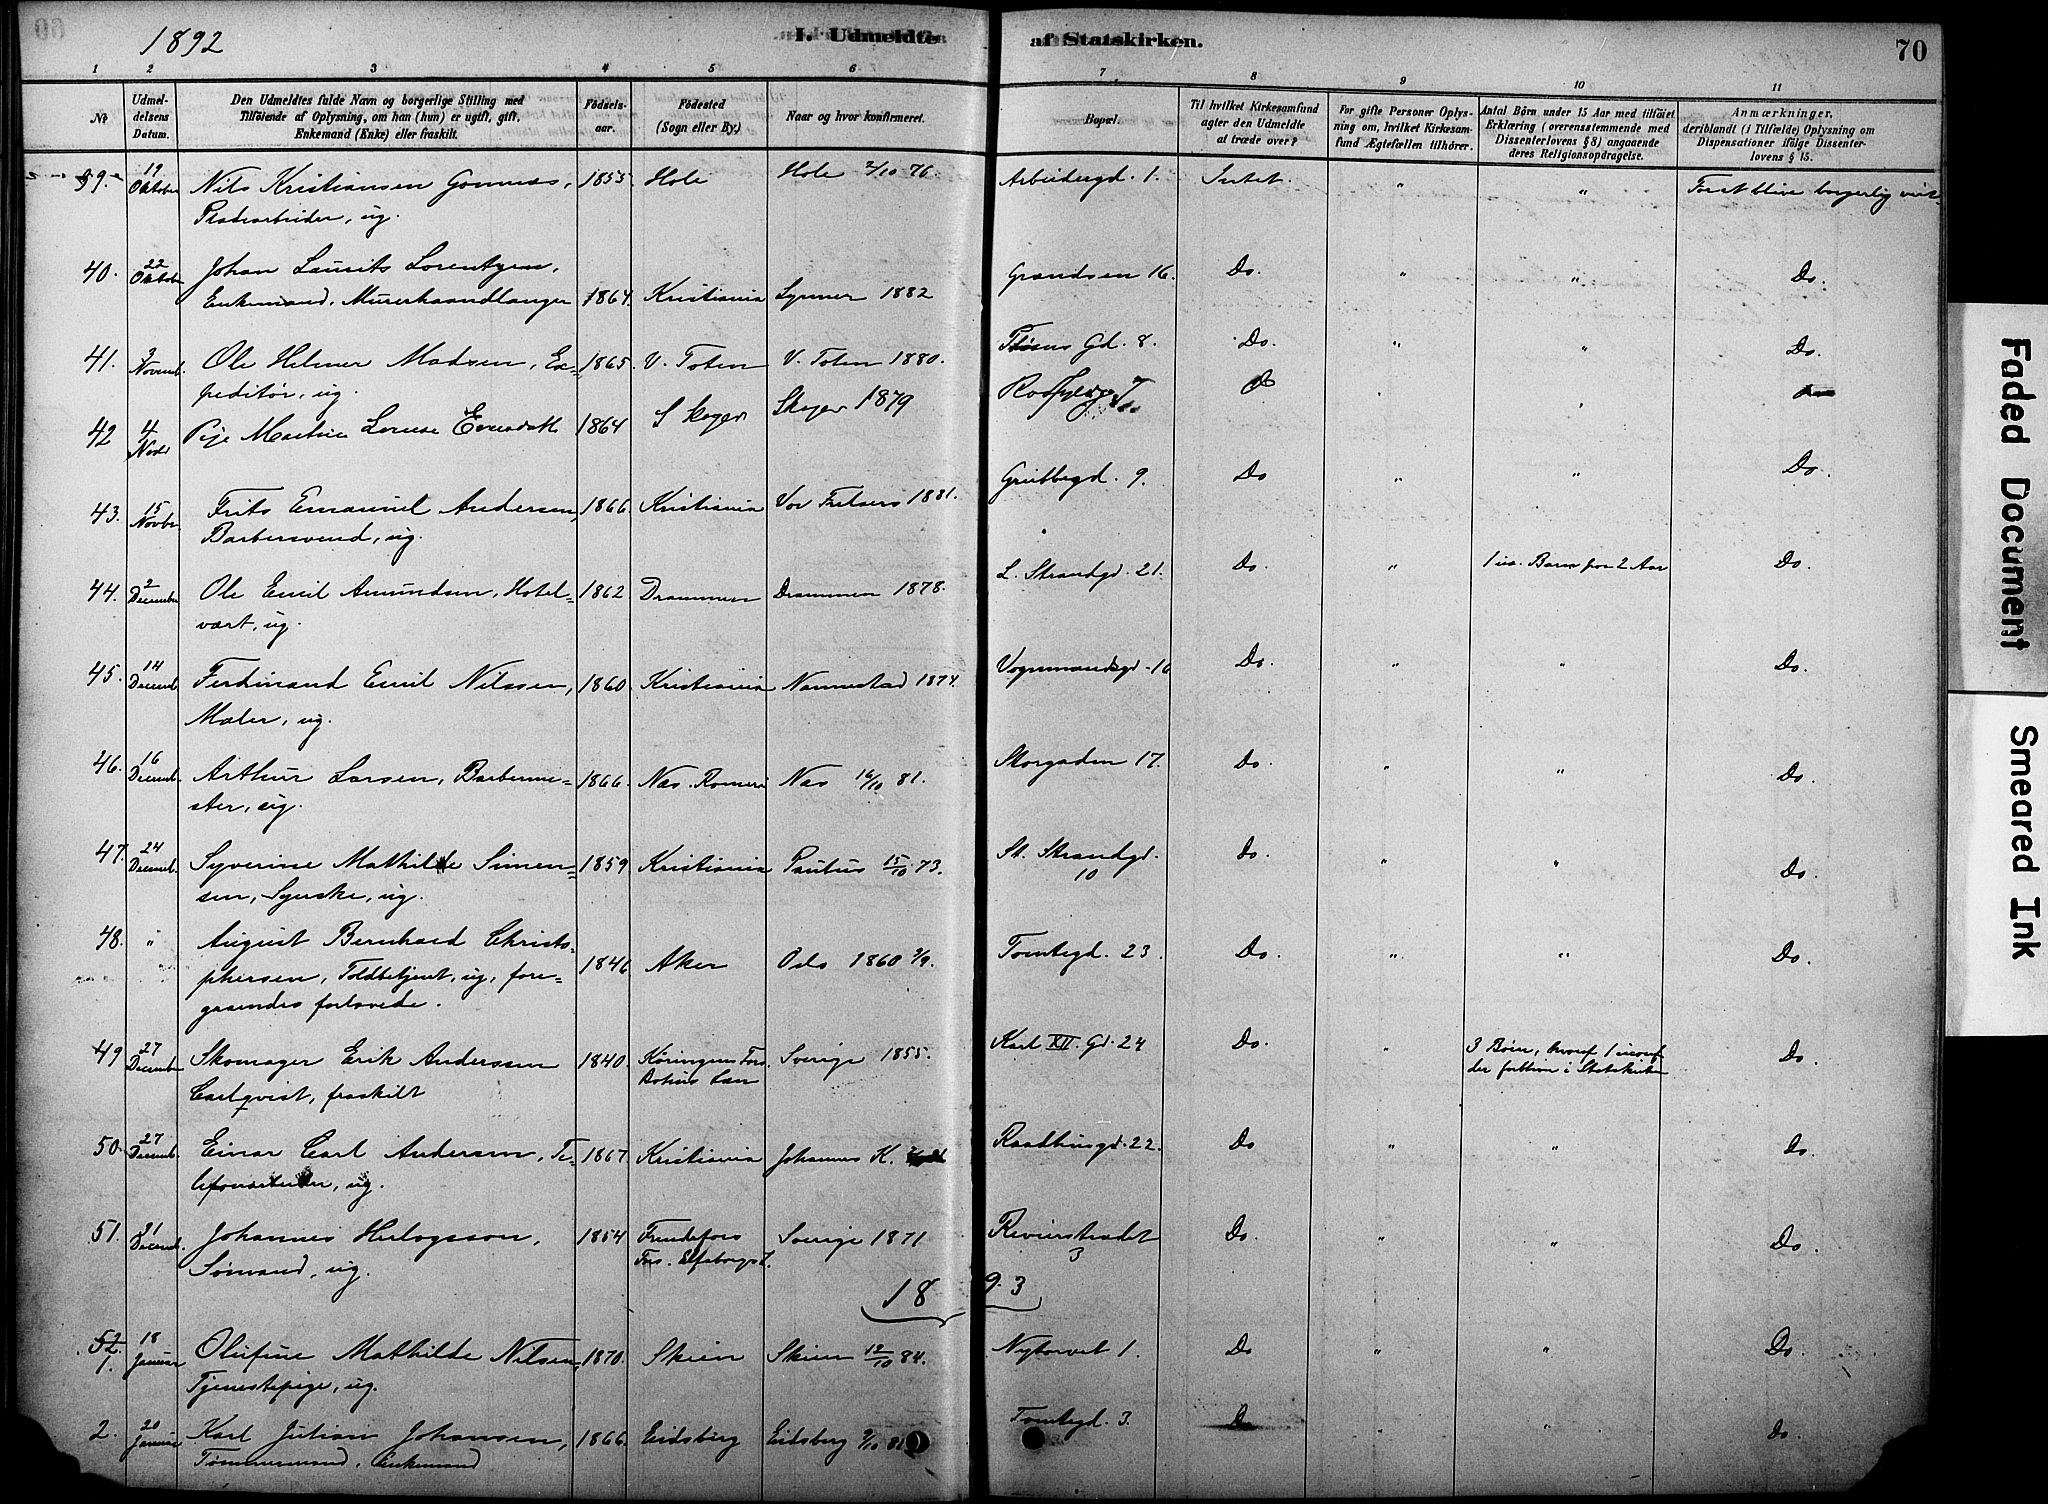 1892
I. Udmeldte af Statskirken.
70
1 2 3 4 5 6 7 8 9 10 11
№
Udmeldelsens Datum.
Den Udmeldtes fulde Navn og borgerlige Stilling med
Tilføiende af Oplysning, om han (hun) er ugift, gift,
Enkemand (Enke) eller fraskilt.
Fødselsaar.
Fødested
(Sogn eller By.)
Naar og hvor konfirmeret.
Bopæl.
Til hvilket Kirkesamfund
agter den Udmeldte
at træde over?
For gifte Personer Oplysning om, hvilket Kirkesamfund Ægtefællen tilhører.
Antal Børn under 15 Aar med tilføiet
Erklæring (overensstemmende med
Dissenterlovens § 8) angaaende
deres Religionsopdragelse.
Anmærkninger,
deriblandt (i Tilfælde) Oplysning om
Dispensationer ifølge Dissenterlovens § 15.
39. 19 Oktober Nils Kristiansen Gomnæs, 1855 Hole Hole 2/10 76. Arbeidergd. 1. Intet. " " For at blive borgerlig viet
Pladearbeider, ug.
40. 22 Oktober Johan Laurits Lorentzen,
Enkemand, Murerhaandlanger 1864. Kristiania 1882 Grændsen 16. Do. " " Do.
41. 3 Novemb. Ole Helmer Madsen, Ex- 1865. V. Toten V. Toten 1880. Gd. 8. Do. " " Do.
peditør, ug.
42 4 Novbr Pige Martine Lovise 1864 Skoger Skoger 1879 Do
43. 15 Novbr. Frits Emanuel Andersen, 1866. Kristiania Vor Frelsers 1881. Grubbegd. 9. Do " " Do.
Barbersvend, ug.
44. 2 December Ole Emil Amundsen, Hotel- 1862 Drammen Drammen 1878. L. Strandgd. 21. Do. " 1 Barn paa 2 Aar Do.
vært, ug.
45. 14 Decemb. Ferdinand Emil Nilssen, 1860. Kristiania Nannestad 1874. Vognmandsgd. 16 Do. " " Do.
Maler, ug.
46. 16 Decemb. Arthur Larsen, Barberme- 1866. Næs. Romeri Næs 16/10 81. Storgaden 17. Do. " " Do.
ster, ug.
47. 24 Decemb. Syverine Mathilde Simen- 1859 Kristiania Paulus 15/10 73. St. Strandgd. 10 Do. " " Do.
sen, Syerske, ug.
48. " August Bernhard Christo-
phersen, Toldbetjent, ug, fore- 1846 Aker Oslo 1860 Tomtegd. 23 Do. " " Do.
gaaendes forlovede.
49 27 December Skomager Erik Anderssen 1840. Sverige 1855. Karl XII. Gd. 24 Do. " 3 Børn, hvoraf 1
der forbliver i Statskirken Do.
Carlqvist, fraskilt
50. 27 Decemb. Einar Carl Andersen, Te- 1867. Kristiania Johannes K. Raadhusgd. 22. Do " " Do.
lefonarbeider, ug.
51. Decemb. Johannes 1854 Sverige 1871 Revierstrædet 3 Do. " " Do.
Sømand, ug. Elfsborgs L.
1893
52. 1. 18 Januar Olufine Mathilde Nilsen, 1870. Skien Skien 12/10 84. Nytorvet 1. Do " " Do.
Tjenestepige, ug.
2. 20 Januar Karl Julian Johansen, 1866. Eidsberg Eidsberg Tomtegd. 3. Do " " Do.
Tømmermand, Enkemand
Faded Document
Smeared Ink